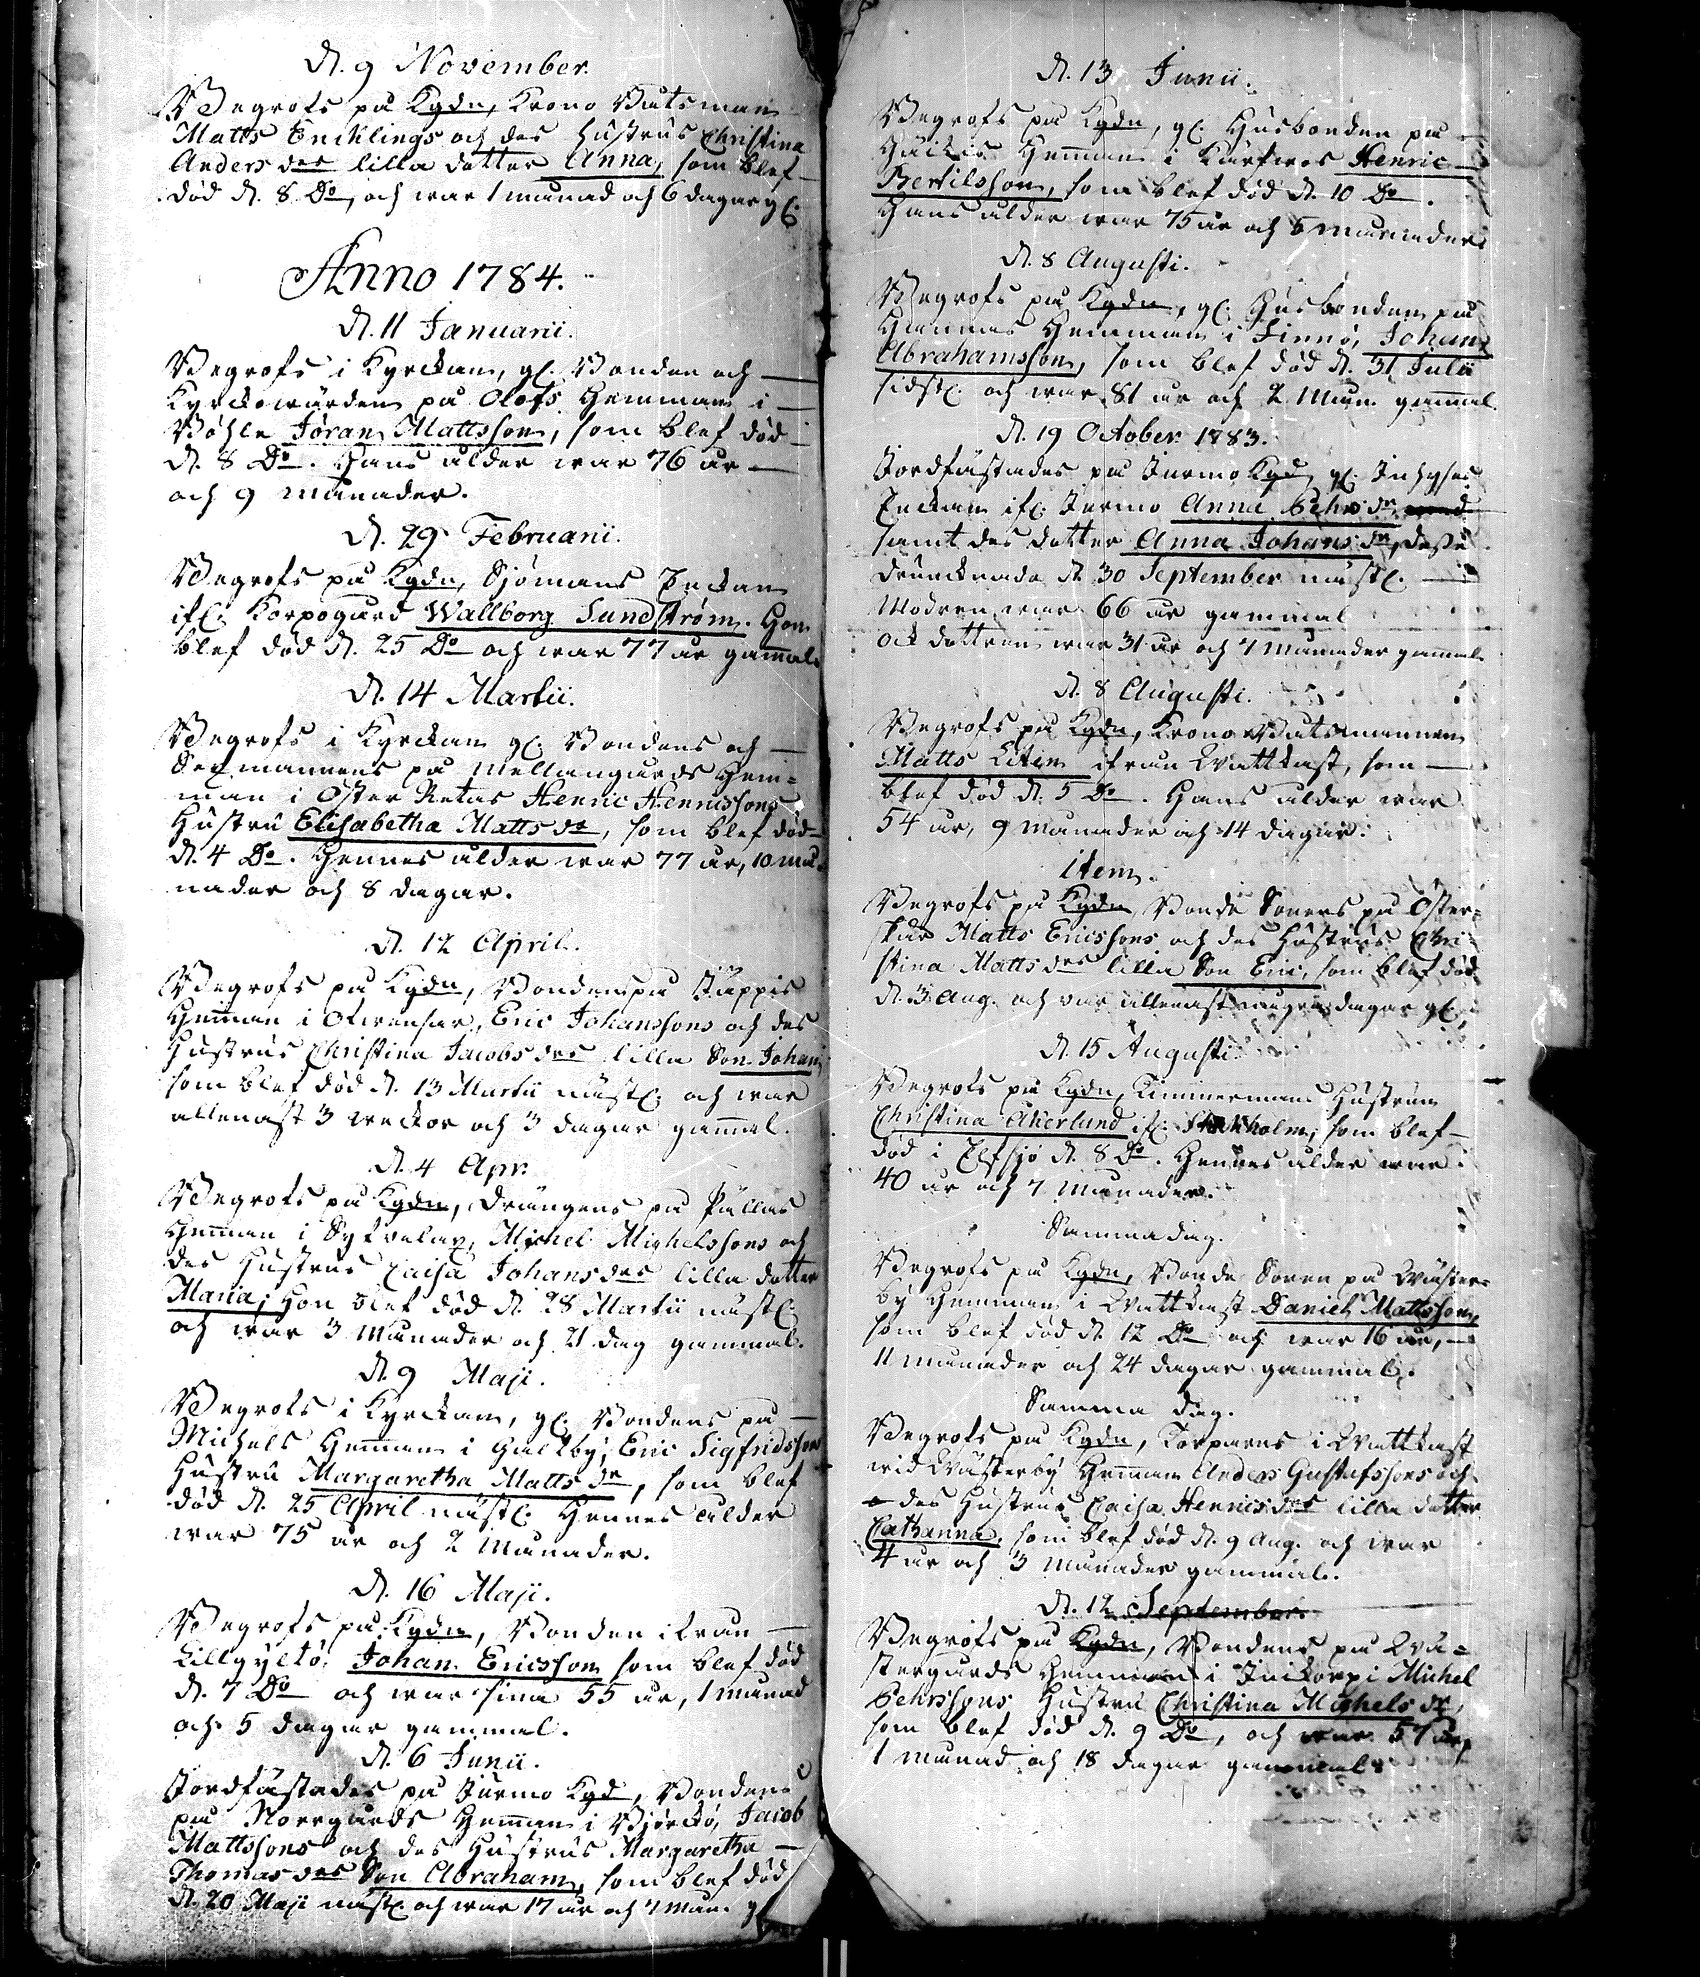 d. 9 November.
Begrofs på Kgdn, Krono Båtsman
Matts Encklings och des hustrus Christina
Anders drs lilla dotter Anna, som blef
död d. 8 Do, och war 1 månad och 6 dagar gl.
Anno 1784.
d. 11 Januarii.
Begrofs i Kyrckan, gl. Bonden och
Kyrckowärden på Olofs Hemman i
Böhle Jöran Mattsson, som blef död
d. 8 Do. Hans ålder war 76 år
och 9 månader.
d. 29 Februarii.
Begrofs på Kgdn, Sjömans Enckan
ifl. Korpogård Wallborg Sundström. Hon
blef död d. 25 Do och war 77 år gammal.
d. 14 Martii.
Begrofs i Kyrckan gl. Bondens och
Sexmannens på Mellangårds Hem-
man i Öster Retais Henric Henricssons
Hustru Elisabetha Matts dr, som blef död
d. 4 Do. Hennes ålder war 77 år, 10 må-
nader och 8 dagar.
d. 12 April.
Begrofs på Kgdn, Bondens på Stappis
Hemman i Ofvensar, Eric Johanssons och des
Hustrus Christina Jacobs drs lilla Son Johan
som blef död d. 13 Martii nästl. och war
allenast 3 weckor och 3 dagar gammal.
d. 4 Apr.
Begrofs på Kgdn, Drängens på Pallas
Hemman i Sydvelax, Michel Michelssons och
des Hustrus Caisa Johans drs lilla dotter
Maria; Hon blef död d. 28 Martii nästl.
och war 3 månader och 21 dag gammal.
d. 9 Maji.
Begrofs i Kyrckan, gl. Bondens på
Michels Hemman i Galtby, Eric Sigfridsson
Hustru Margaretha Matts dr, som blef
död d. 25 April nästl. Hennes ålder
war 75 år och 2 månader.
d. 16 Maji.
Begrofs på Kgdn, Bonden ifrån
Lillgyltö, Johan Ericsson som blef död
d. 7 Do och war sina 55 år, 1 månad
och 5 dagar gammal.
d. 6 Junii.
Jordfästades på Jurmo Kgd, Bondens
på Norrgårds Hemman i Björckö, Jacob
Mattssons och des Hustrus Margaretha
Thomas drs Son Abraham, som blef död
d. 20 Maji nästl. och war 17 år och 7 mån. g
d. 13 Junii.
Begrofs på Kgdn, gl. Husbonden på
Hemman i Henric
Bertilsson, som blef död d. 10 Do.
Hans ålder war 75 år och 5 månader
d. 8 Augusti.
Begrofs på Kgdn, gl. Husbonden på
Hannas Hemman i Finnö, Johan
Abrahamsson, som blef död d. 31 Julii
sidstl. och war 81 år och 2 Mån. gammal.
d. 19 October 1783.
Jordfästades på Jurmo Kgd gl. Inhyses
Enckan ifl. Jurmo Anna Pehrs dr
samt des dotter Anna Johans dr, desse
drunknade d. 30 September nästl.
Modren war 66 år gammal
och dottren war 31 år och 7 månader gammal
d. 8 Augusti.
Begrofs på Kgdn, Krono Båtsmannen
Matts Liten ifrån Wattkast, som
blef död d. 5 Do. Hans ålder war
54 år, 9 månader och 14 dagar.
item.
Begrofs på Kgdn Bonde Sonens på Öster-
skär Matts Ericssons och des Hustrus Chri-
stina Matts drs lilla Son Eric, som blef död
d. 3 Aug. och var allenast några dagar gl.
d. 15 Augusti.
Begrofs på Kgdn, Timmermans Hustrun
Christina Åkerlund ifl. Stockholm; som blef
död i Elfsjö d. 8 Do. Hennes ålder war
40 år och 7 månader.
Samma dag.
Begrofs på Kgdn, Bonde Sonen på Wäster-
by Hemman i Wattkast Daniel Mattsson,
som blef död d. 12 Do och war 16 år,
11 månader och 24 dagar gammal.
Samma dag.
Begrofs på Kgdn, Torparens i Wattkast
wid Wästerby Hemman Anders Gustafssons och
des Hustrus Caisa Henrics drs lilla dotter
Catharina, som blef död d. 9 Aug. och war
4 år och 3 månader gammal.
d. 12 September.
Begrofs på Kgdn, Bondens på Wä-
stergårds Hemman i Träskorpi Michel
Pehrssons Hustru Christina Michels dr,
som blef död d. 9 Do, och war 57 år,
1 månad och 18 dagar gammal.